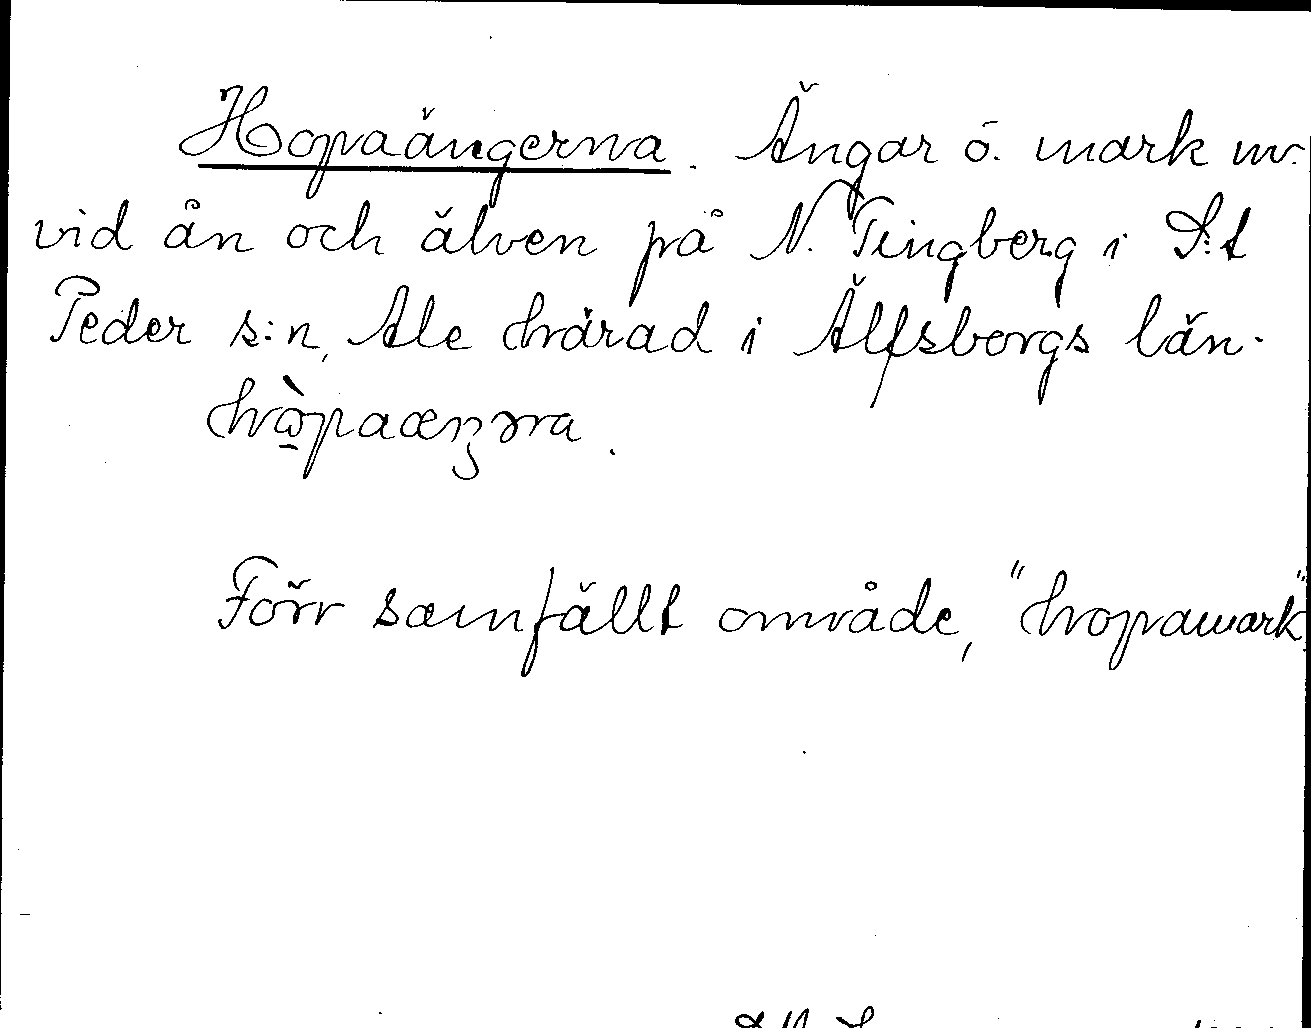 Hopaängerna. Ängar ö. mark nv.
vid ån och älven på N. Tingberg i S:t
Peder s:n, Ale härad i Älfsborgs län.
hὼ̠paæŋərna.
Förr samfällt område, "hopamark".